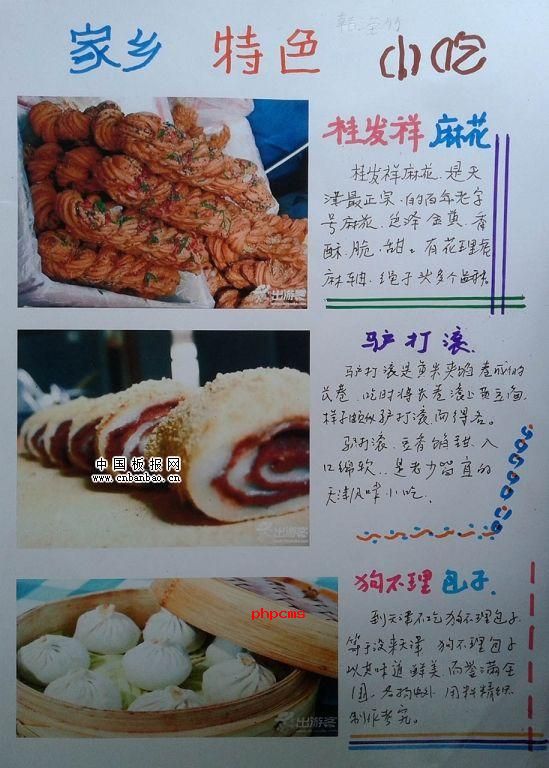 家乡 特色 小吃
桂发祥麻花
桂发祥麻花,是天
津最正宗的百年老字
号麻花,色泽金黄,香
酥、脆、甜。有花理花
出游客
驴打滚
驴打滚是黄米夹馅卷成的
长卷,吃时将长卷滚上黄豆面,
样子颇似驴打滚而得名。
驴打滚,豆香馅甜,入
口绵软,是老少皆宜的
天津风味小吃。
中国板报网
www.cnbanbao.cn
出游客
狗不理包子
到天津不吃狗不理包子
等于没来天津 狗不理包子
以其味道鲜美,而誉满全
国,名扬 用料精细
制作考究。
phpcms
出游客